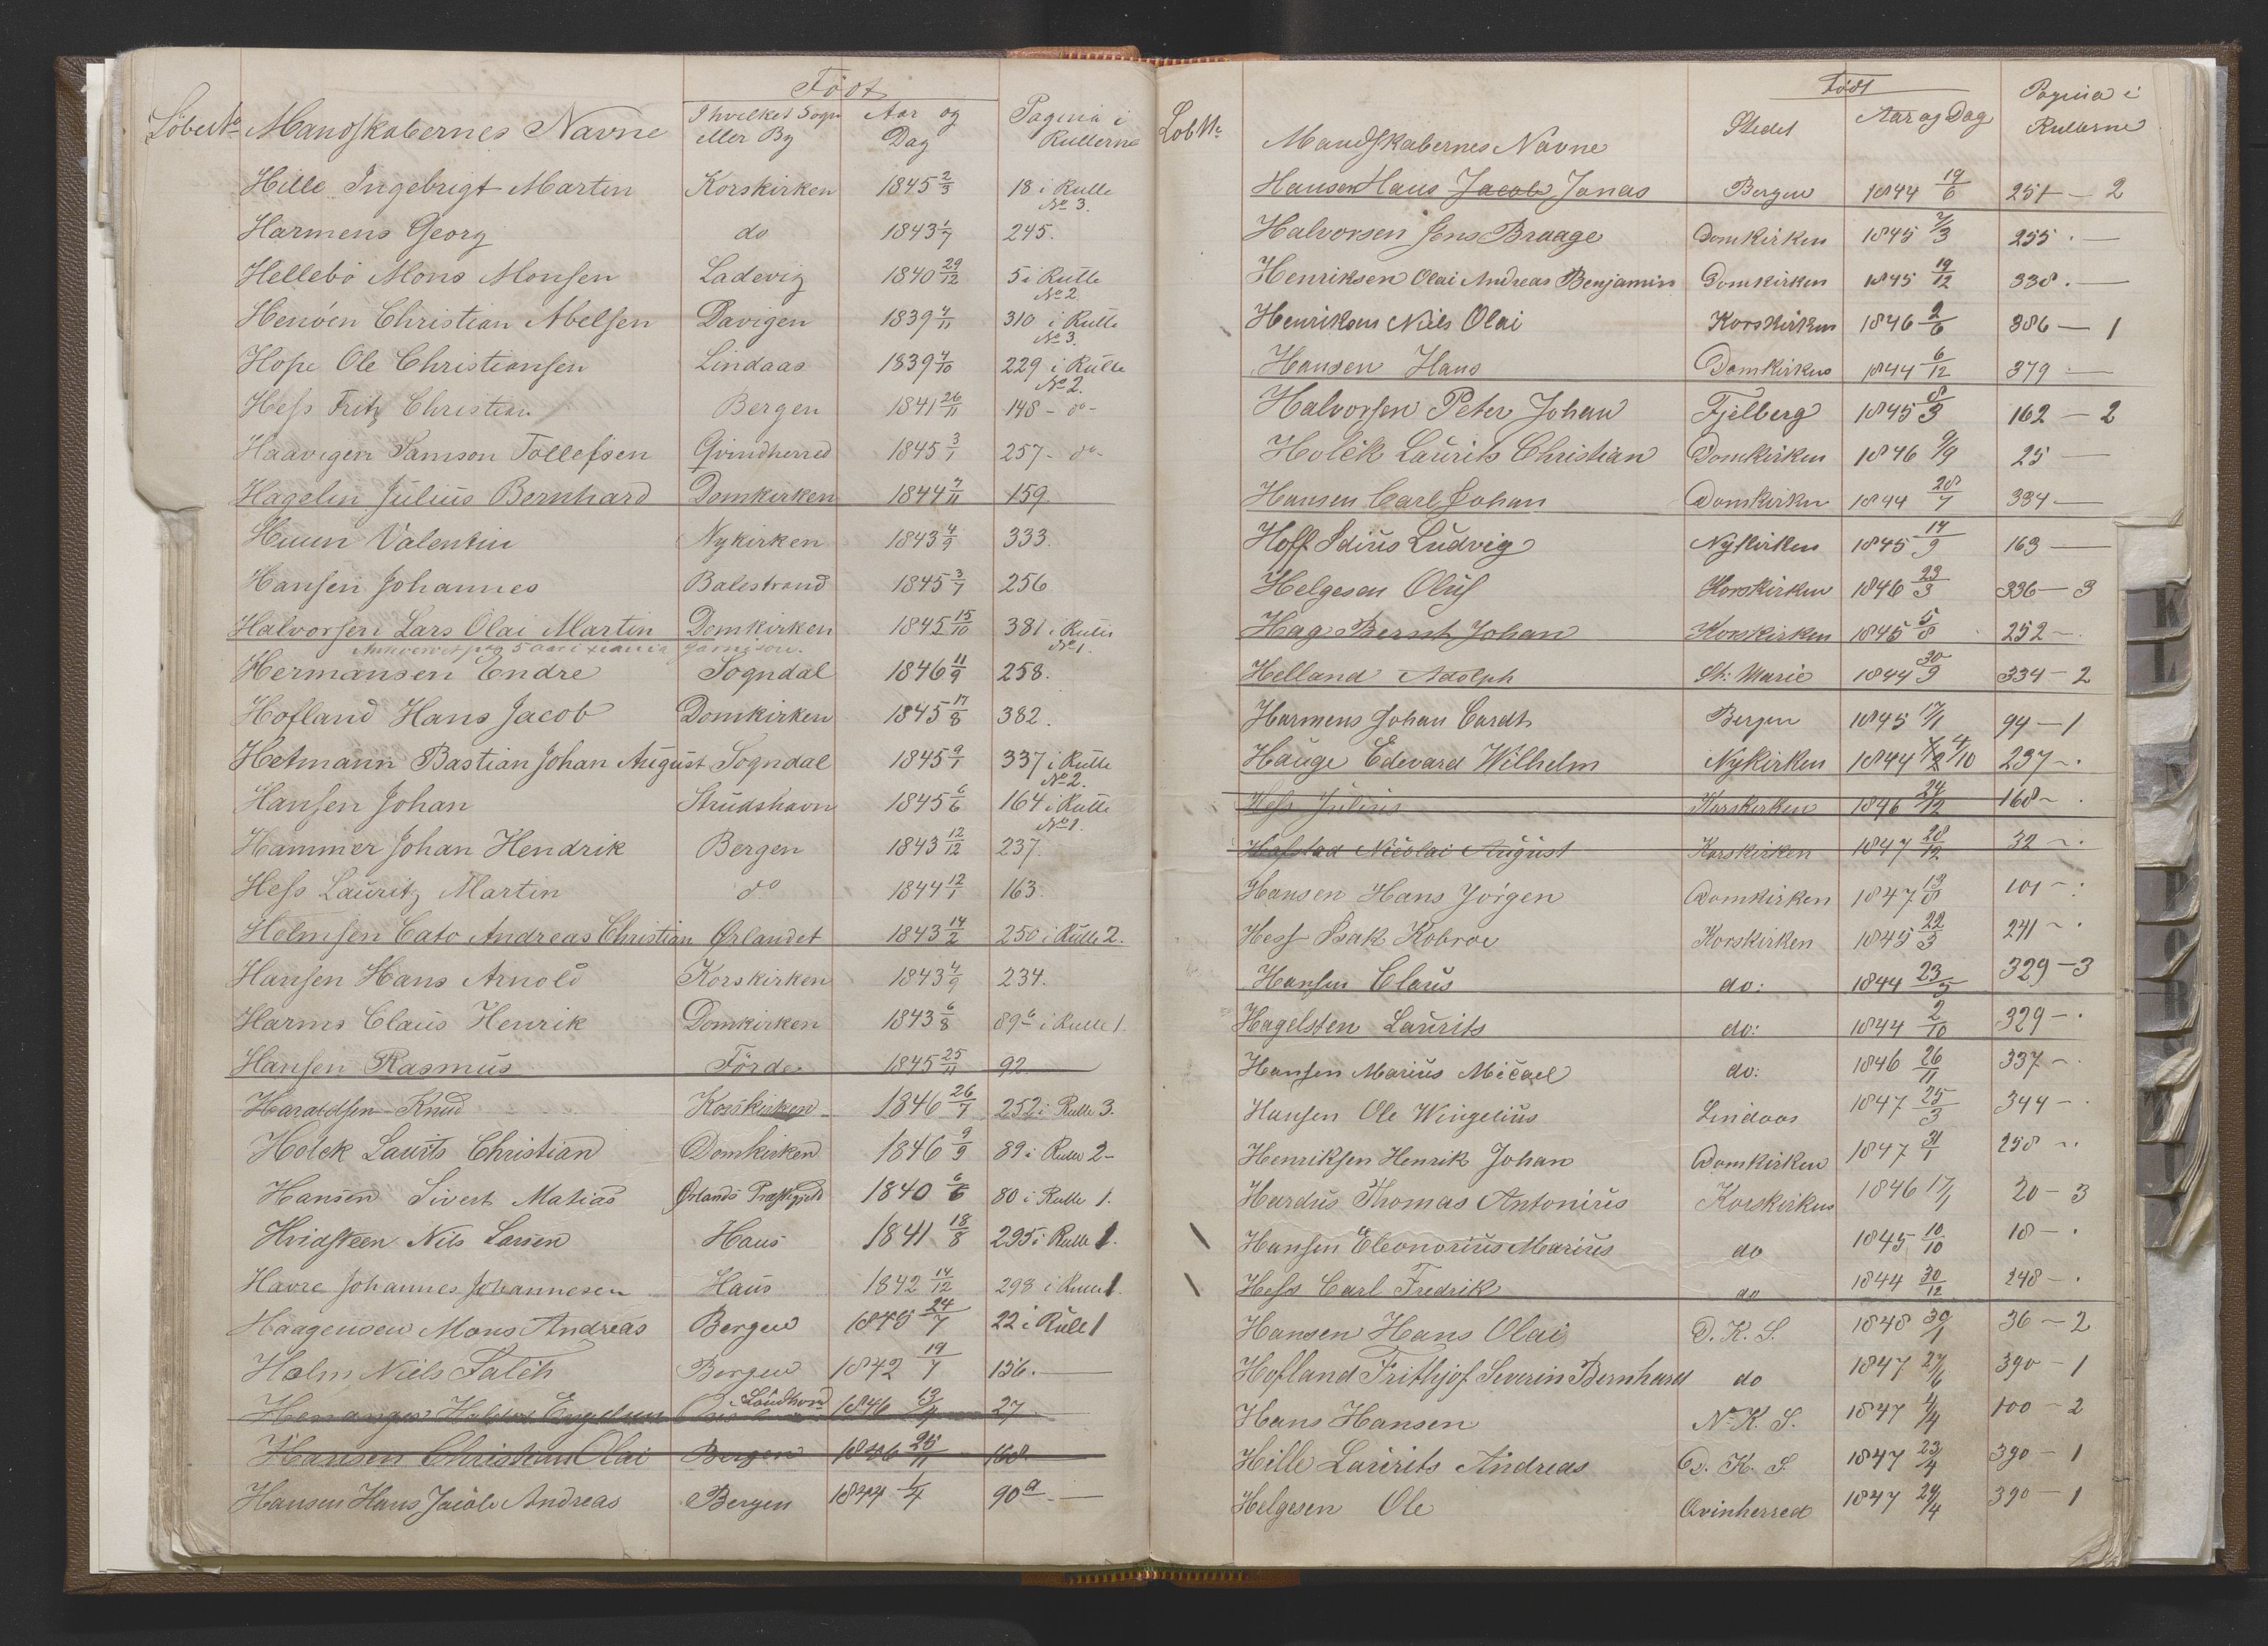 Födt
Löbe No Mandskabernes Navne I hvilket Sogn eller By Aar og Dag Pagina i Rullerne
Hille Ingebrigt Martin Korskirken 1845 2/3 18 i Rulle No 3.
Harmens Georg do 1843 1/7 245.
Hellebö Mons Monsen Ladevig 1840 29/12 5 i Rulle No 2
Henöen Christian Abelsen Davigen 1839 4/11 310 i Rulle No 3.
Hope Ole Christiansen Lindaas 1839 4/10 229 i Rulle No 2.
Hess Fritz Christian Bergen 1841 26/11 148 - do -
Haavigen Samson Tollefsen Qvindherred 1845 3/1 257 - do -
Hagelin Julius Bernhard Domkirken 1844 7/11 159
Huun Valentin Nykirken 1843 4/9 333.
Hansen Johannes Balestrand 1845 3/7 256
Halvorsen Lars Olai Martin Domkirken 1845 15/10 381 i Rulle No 1.
5 aar i garnison.
Hermansen Endre Sogndal 1846 11/9 258.
Hofland Hans Jacob Domkirken 1845 17/8 382.
Hetmann Bastian Johan August Sogndal 1845 9/1 337 i Rulle No 2.
Hansen Johan Strudshavn 1845 6/6 164 i Rulle No 1.
Hammer Johan Hendrik Bergen 1843 12/12 237.
Hess Lauritz Martin do 1844 12/1 163.
Holmsen Cato Andreas Christian Ørlandet 1843 14/2 250 i Rulle 2.
Hansen Hans Arnold Korskirken 1843 4/9 234.
Harms Claus Henrik Domkirken 1843 6/8 89 b i Rulle 1.
Hansen Rasmus Förde 1845 25/11 92
Haraldsen Knud Korskirken 1846 26/7 252 i Rulle 3.
Holck Laurits Christian Domkirken 1846 9/9 89 i Rulle 2-
Hansen Sivert Matias Ørlands Præstegjeld 1840 6/6 80 i Rulle 1.
Hvidsteen Nils Larsen Haus 1841 18/8 295 i Rulle 1.
Havre Johannes Johannesen Haus 1842 14/12 298 i Rulle 1.
Haagensen Mons Andreas Bergen 1845 24/7 22 i Rulle 1
Holm Niels Falch Bergen 1842 19/7 156. —
1846 13/4 27
Hansen Christian Olai Bergen 1846 25/11 168.
Hansen Hans Jacob Andreas Bergen 1844 1/4 90 a. —
Födt
Löb No Mandskabernes Navne Stedet Aar og Dag Pagina i Rullerne
Hansen Hans Jacob Jonas Bergen 1844 19/6 251 — 2
Halvorsen Jens Braage Domkirken 1845 2/3 255. —
Henriksen Olai Andreas Benjamin Domkirken 1845 19/12 338. —
Henriksen Niels Olai Korskirken 1846 2/6 386 — 1
Hansen Hans Domkirken 1844 6/12 379 —
Halvorsen Peter Johan Fjelberg 1845 8/3 162 — 2
Holck Laurits Christian Domkirken 1846 9/9 25 —
Hansen Carl Johan Domkirken 1844 28/7 334 —
Hoff Idius Ludvig Nykirken 1845 14/9 163 —
Helgesen Oluf Korskirken 1846 23/3 336 — 3
Hag Bernt Johan Korskirken 1845 5/8 252 —.
Helland Adolph St: Marie 1844 30/9 334 — 2
Harmens Johan Cardt Bergen 1845 17/1 94 — 1
Hauge Edevard Wilhelm Nykirken 1844 4/10 237 —.
Hess Julius Korskirken 1846 24/12 168 —.
Hafstad Nicolai August Korskirken 1847 28/12 32 —.
Hansen Hans Jörgen Domkirken 1847 13/8 101 —.
Hess Isak Kobroe Korskirken 1845 22/3 241 —.
Hansen Claus do: 1844 23/5 329 — 3
Hagelsten Laurits do: 1844 2/10 329 —.
Hansen Marius Micael do: 1846 26/11 337 —.
Hansen Ole Wingelius Lindaas 1847 25/3 344 —.
Henriksen Henrik Johan Domkirken 1847 31/1 258 —.
Hardus Thomas Antonius Korskirken 1846 17/1 20 — 3
Hansen Eleonorius Marius do 1845 10/10 18 —.
Hess Carl Fredrik do 1844 30/12 248 —.
Hansen Hans Olai D. K. S. 1848 30/1 36 — 2
Hofland Frithjof Severin Bernhard do 1847 27/6 390 — 1
Hans Hansen N. K. S. 1847 4/4 100 — 2
Hille Laurits Andreas D. K. S. 1847 23/4 390 — 1
Helgesen Ole Qvinherred 1847 29/4 390 — 1
K
L
N
P
R
T